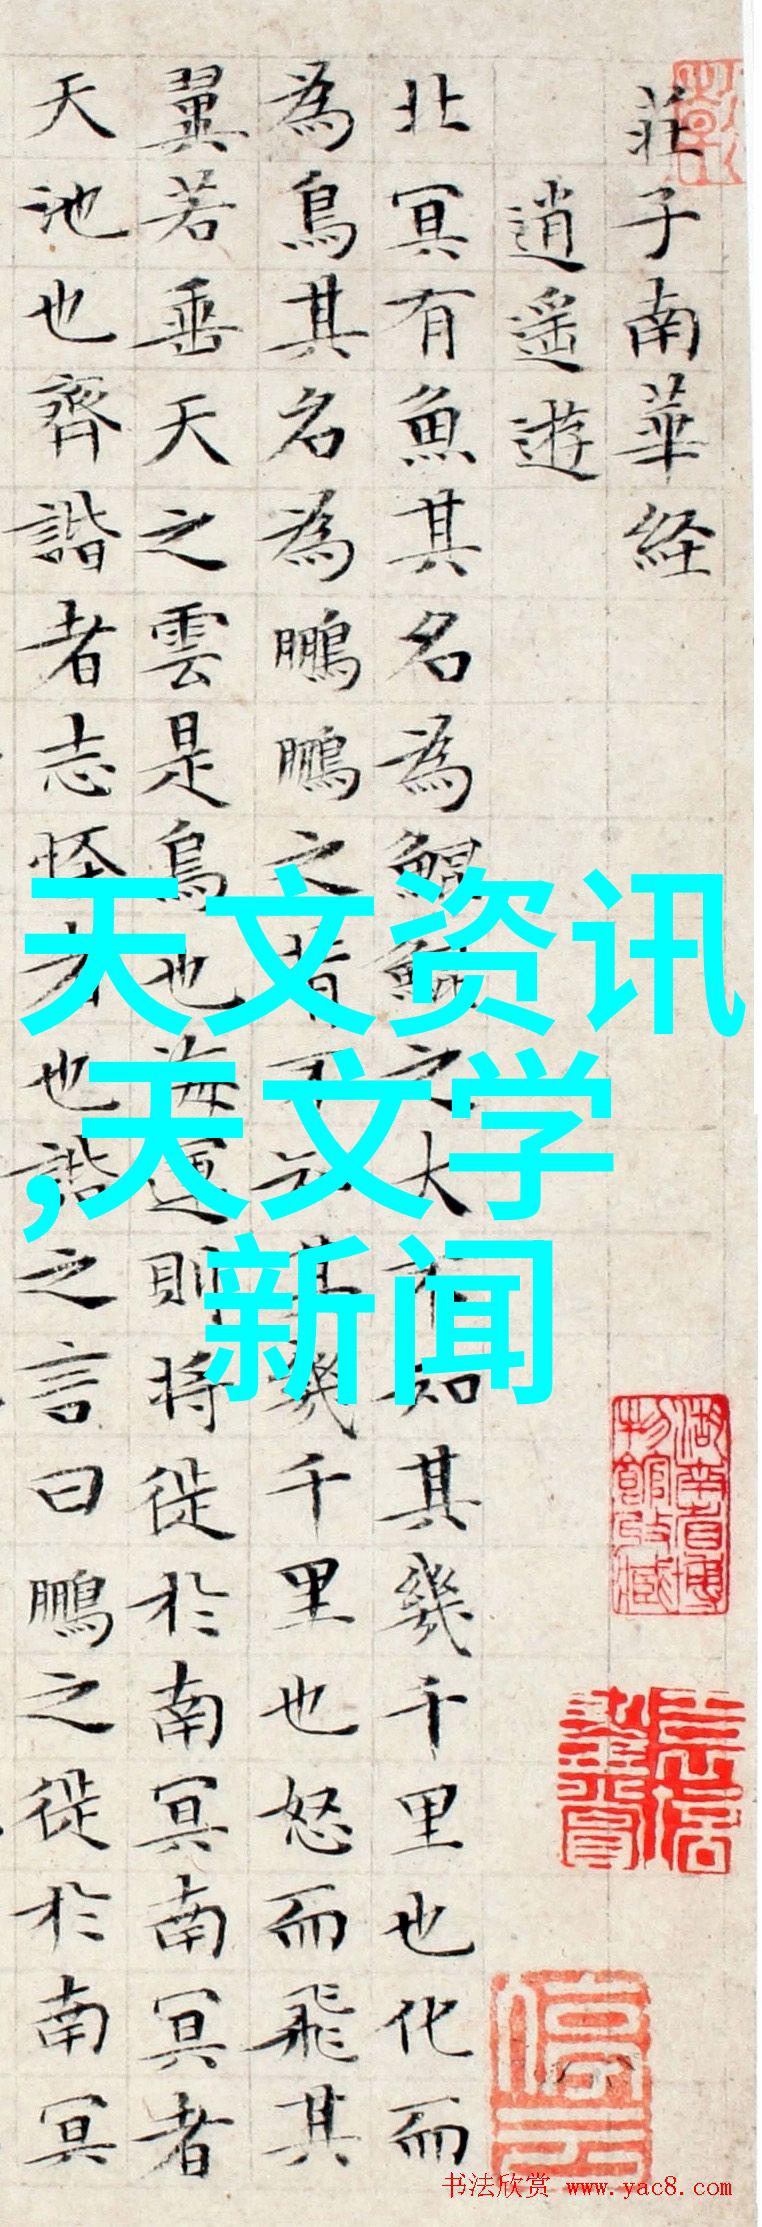 莊子南華経
逍遥遊
北冥有魚其名為鯤鯤之大不知其幾千里也化而
為鳥其名為鵬鵬之背不知其幾千里也怒而飛其
翼若垂天之雲是鳥也海運則將徙於南冥南冥者
天池也齊諧者志怪者也諧之言曰鵬之徙於南冥
天文资讯
,天文学
新闻
湖南省博
物館收藏
书法欣赏 www.yac8.com